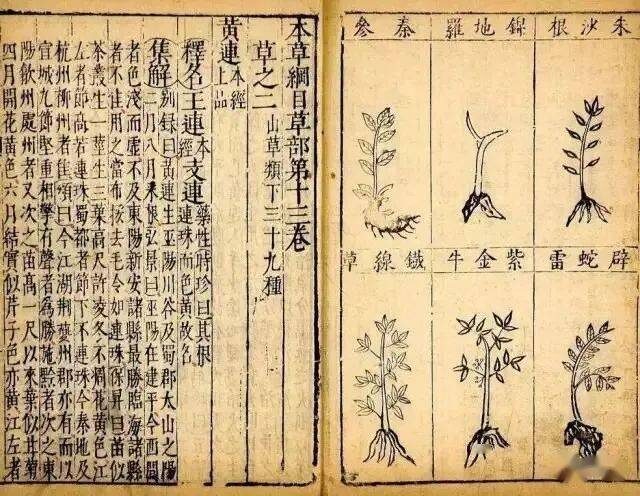 朱沙根
錦地羅
秦參
辟蛇雷
紫金牛
鐵線草
本草綱目草部第十三卷
草之二 山草類下三十九種
黃連 本經上品
釋名 王連 本經 支連 藥性 時珍曰其根連珠而色黃故名
集解 別錄曰黃連生巫陽川谷及蜀郡太山之陽
二月八月采根弘景曰巫陽在建平今西間
者色淺而虛不及東陽新安諸縣最勝臨海諸縣
者不佳用之當布挼去毛令如連珠保昇曰苗似
茶叢生一莖生三葉高尺許凌冬不凋花黃色江
左者節高若連珠蜀都者節下不連珠今秦地及
杭州柳州者佳頌曰今江湖荆夔州郡亦有而以
宣城九節堅重相擊有聲者為勝施黔者次之東
陽歙州處州者又次之苗高一尺以來葉似甘菊
四月開花黃色六月結實似芹子色亦黃江左者